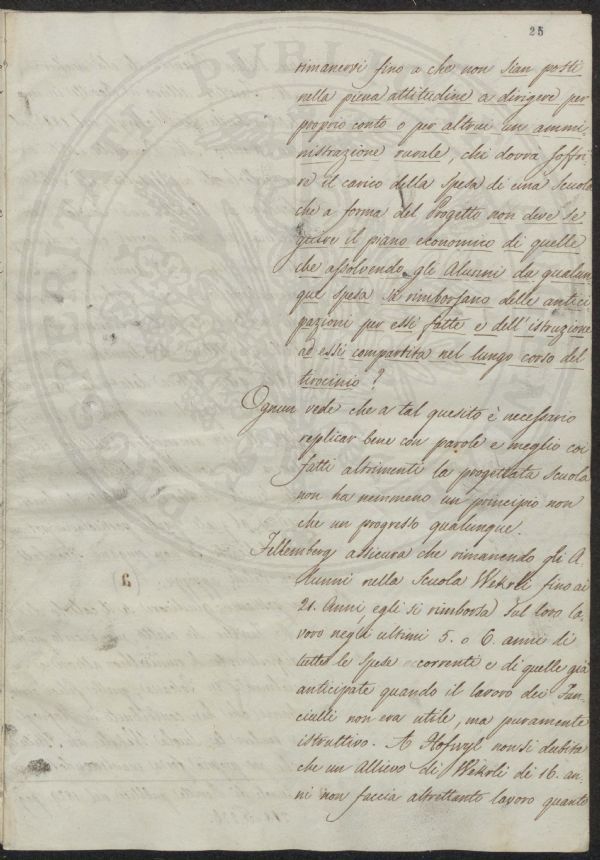 25
rimanervi fino a che non sian posti
nella piena attitudine a dirigere per
proprio conto o per altrui un ammi
nistrazione rurale, chi dovrà soffri
re il carico della spesa di una Scuola
che a forma del Progetto non deve se
guire il piano economico di quelle
che assolvendo gli Alunni da qualun
que spesa si rimborsano delle antici
pazioni per essi fatte e dell'istruzione
ad essi compartita nel lungo corso del
tirocinio?
Ognun vede che a tal quesito è necessario
replicar bene con parole e meglio coi
fatti altrimenti la progettata Scuola
non ha nemmeno un principio non
che un progresso qualunque.
Fellemberg assicura che rimanendo gli A.
lunni nella Scuola Wekrli fino ai
21. Anni, egli si rimborsa sul loro la,
voro negli ultimi 5. o 6. anni di
tutte le spese correnti e di quelle già
anticipate quando il lavoro dei Fan,
ciulli non era utile, ma puramente
istruttivo. A Hofwyl non si dubita
che un Allievo di Wekrli di 16. an,
ni non faccia altrettanto lavoro quanto